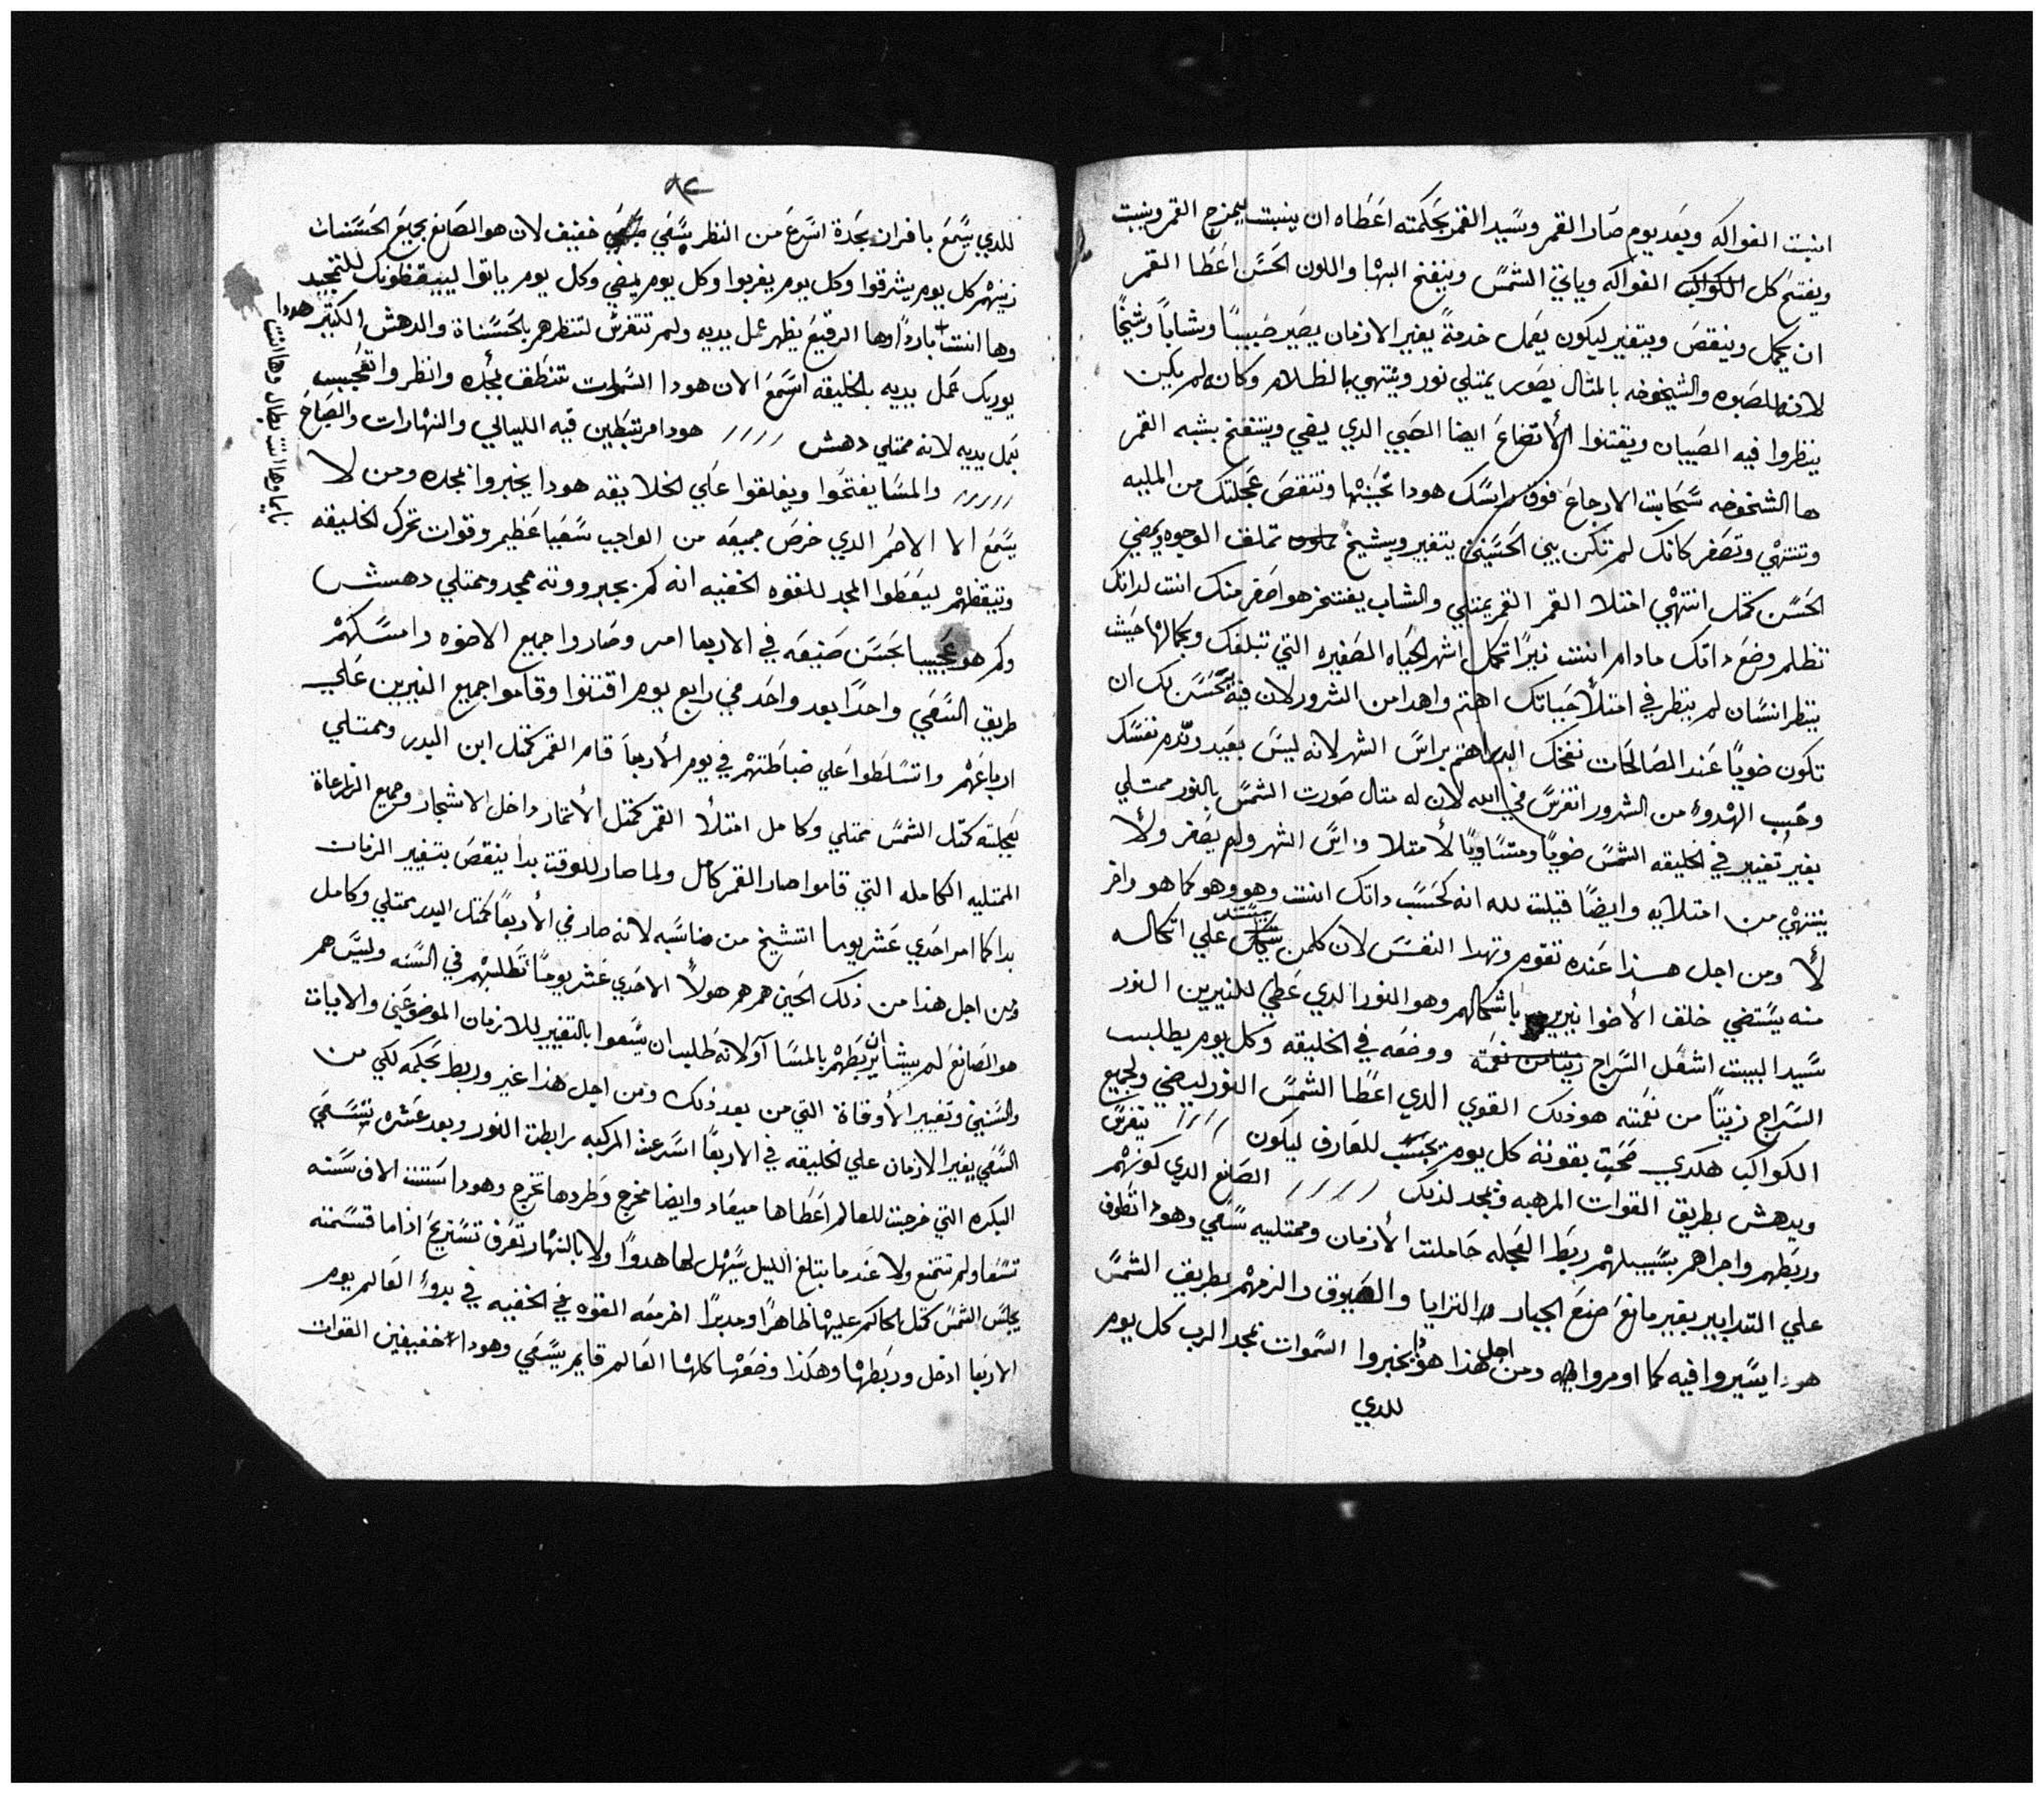 انبت الفواكه وبعد يوم صار القمر وسيد القمر بحكمته اعطاه ان ينبت ليمزج القمر وينبت
ويفتح كل الكواكب الفواكه وياتي الشمس وينفتح البها واللون الحسن اعطا القمر
ان يكمل وينقص ويتغير ليكون يعمل خدمة يغير الازمان يصير صبيا وشابا وشيخا
لانه للصبوه والشيخوخه بالمثال يصور يمتلي نور وينتهي بالظلام وكانه لم يكين
ينظروا فيه الصبيان ويقتنوا الأتضاع ايضا الصبي الذي يفي وينتفخ بشبه القمر
ها الشخوخه سحابت الارجاع فوق راسك هودا تحبنها وتنقص عجلتك من المليه
وتنتهي وتصغر كانك لم تكن بيني الحسنين يتغير ويشيخ تملون تملف الوجوه ويمضي
الحسن كمثل انتهي امتلا القمر القمر يمتلي والشاب يفتخر هو اصغر منك انت لداتك
تظلم وضع داتك مادام انت نيرا تكمل اشهر الحياه الصغيره التي تبلغك وبكمالها حيث
ينظر انسان لم ينظر في امتلا حياتك اهتم واهدا من الشرور لان فيه يحسن بك ان
تكون ضويا عند الصالحات نفخك البدر اهتم براس الشهر لانه ليس بعيد ونده نفسك
وحب الهدؤ من الشرور اتفرس في الله لان له مثال صورت الشمس بالنور ممتلي
بغير تغيير في الخليقه الشمس ضويا ومتساويا لأمتلا وراس الشهر ولم يصغر ولأ
ينتهي من امتلايه وايضا قبلت لله انه كحسب داتك انت وهو وهو كما هو واخر
لأ ومن اجل هذا عنده تقوم وتهدا النفس لان كلمن يستند علي اتكاله
منه يستضي خلف الأضوا نيرين باشكالهم وهو النور الدي عطي للنيرين النور
سيد البيت اشعل السراج زيتا من نعمته ووضعه في الخليقه وكل يوم يطلب
السراج زيتا من نعمته هودلك القوي الدي اعطا الشمس النور ليضي ولجميع
الكواكب هكدي محبت بقوته كل يوم تحسب للعارف ليكون //// يتفرس
ويدهش بطريق القوات المرهبه ويمجد لدلك //// الصانع الدي كونهم
وربطهم واجراهم بسبيلهم ربط العجله حاملت الأزمان وممتليه سعي وهودا تطوف
علي التدابير بغير مانع صنع الجبار والثرايا والعيوق والزمهم بطريق الشمس
هودا يسيروا فيه كما اومروا به ومن اجل هذا هودا يخبروا السموات بمجد الرب كل يوم
للدي
٨٢
للدي يسمع بافران بجدة اسرع من النظر يسعي خفيف لان هو الصانع بجميع الحسنات
زينهم كل يوم يشرقوا وكل يوم يغربوا وكل يوم يمضي وكل يوم ياتوا ليبقظونك للتمجيد
وها انت باردا وها الرقيع يظهر عمل يديه ولم تتفرس لتنظرهم بالحسنات والدهش الكبير هودا
يوريك عمل يديه بالخليقه اسمع الان هودا السموات تنطف بمجده وانظر واتعجب
بعمل يديه لانه ممتلي دهش //// هودا مرتبطين فيه الليالي والنهارات والصباح
///// والمسا يفتحوا ويغلقوا علي الخلايقه هودا يخبروا بمجده ومن لا
يسمع الا الاصم الدي خرص جميعه من الواجب سعيا عظيم وقوات تحرك الخليقه
وتيقظهم ليعطوا المجد للقوه الخفيه انه كم يجبرووته ممجد وممتلي دهش
وكم هو عجيبا بحسن صنيعه في الاربعا امر وصاروا جميع الاضوه وامسكهم
طريق السعي واحدا بعد واحد في رابع يوم اقتنوا وقاموا جميع النيرين علي
ارباعهم واتسلطوا علي ضباطتهم في يوم الأربعا قام القمر كمثل ابن البدر وممتلي
بعجلته كمثل الشمس ممتلي وكامل امتلأ القمر كمثل الأثمار داخل الاشجار وجميع الزارعاة
الممتليه الكامله التي قاموا صار القمر كامل ولما صار للوقت بدا ينقص بتغيير الزمان
بدا كما امر احدي عشر يوما اتشيخ من مناسبه لانه صار في الأربعا كمثل البدر ممتلي وكامل
ومن اجل هذا من ذلك الحين همر همر هولأ الاحدي عشر يوما تطلبهم في السنه وليس هم
هو الصانع لم يشا ان يربطهم بالمسا آو لانه طلب ان يسعوا بالتغيير للازمان الموضوعين والايبات
والسنين وتغيير الأوقاة التي من بعد ذلك ومن اجل هذا غير وربط بحكمه لكي من
السعي يغير الازمان علي الخليقه في الاربعا اسرعت المركبه رابطت النور وبعد عشره يتسعي
البكره التي خرجت للعالم اعطاها ميعاد وايضا مخرج وطردها تخرج وهودا ستت الاف سنه
تسعا ولم تتمنع ولا عندما بتالغ الليل يسهل لها هدوا ولا بالنهار تعرف تستريح اذا ما قسمته
يجلس الشمس كمثل الحاكم عليها ظاهرا ومدبرا اخر معه القوه في الخفيه في بدوء العالم يوم
الاربعا ادخل وربطها وهكذا وضعها كلها العالم قايم يسعي وهودا خفيفين القوات
نايما وها انت بطال وها انت